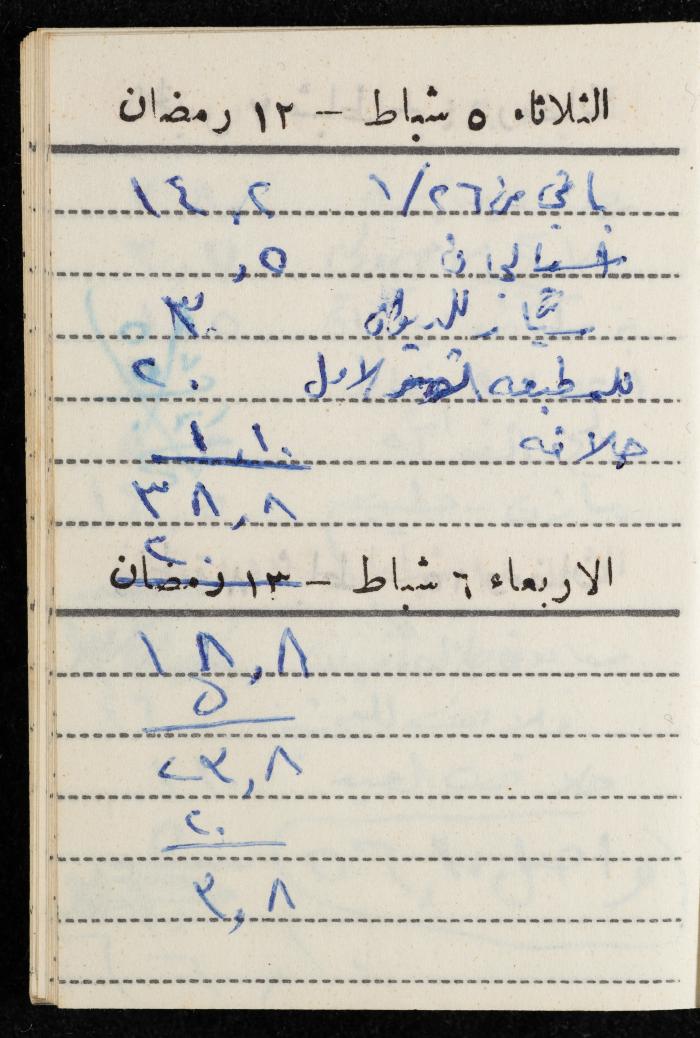 الثلاثاء ٥ شباط – ١٢ رمضان
باقي من ٢٦/١ ١٤,٢
٥,
للديوان ٣٠
للمطبعه لاول ٢٠
حلاقه ١,١٠
٣٨,٨
٢٠
الاربعاء ٦ شباط – ١٣ رمضان
١٨,٨
٥
٢٣,٨
٢٠
٣,٨